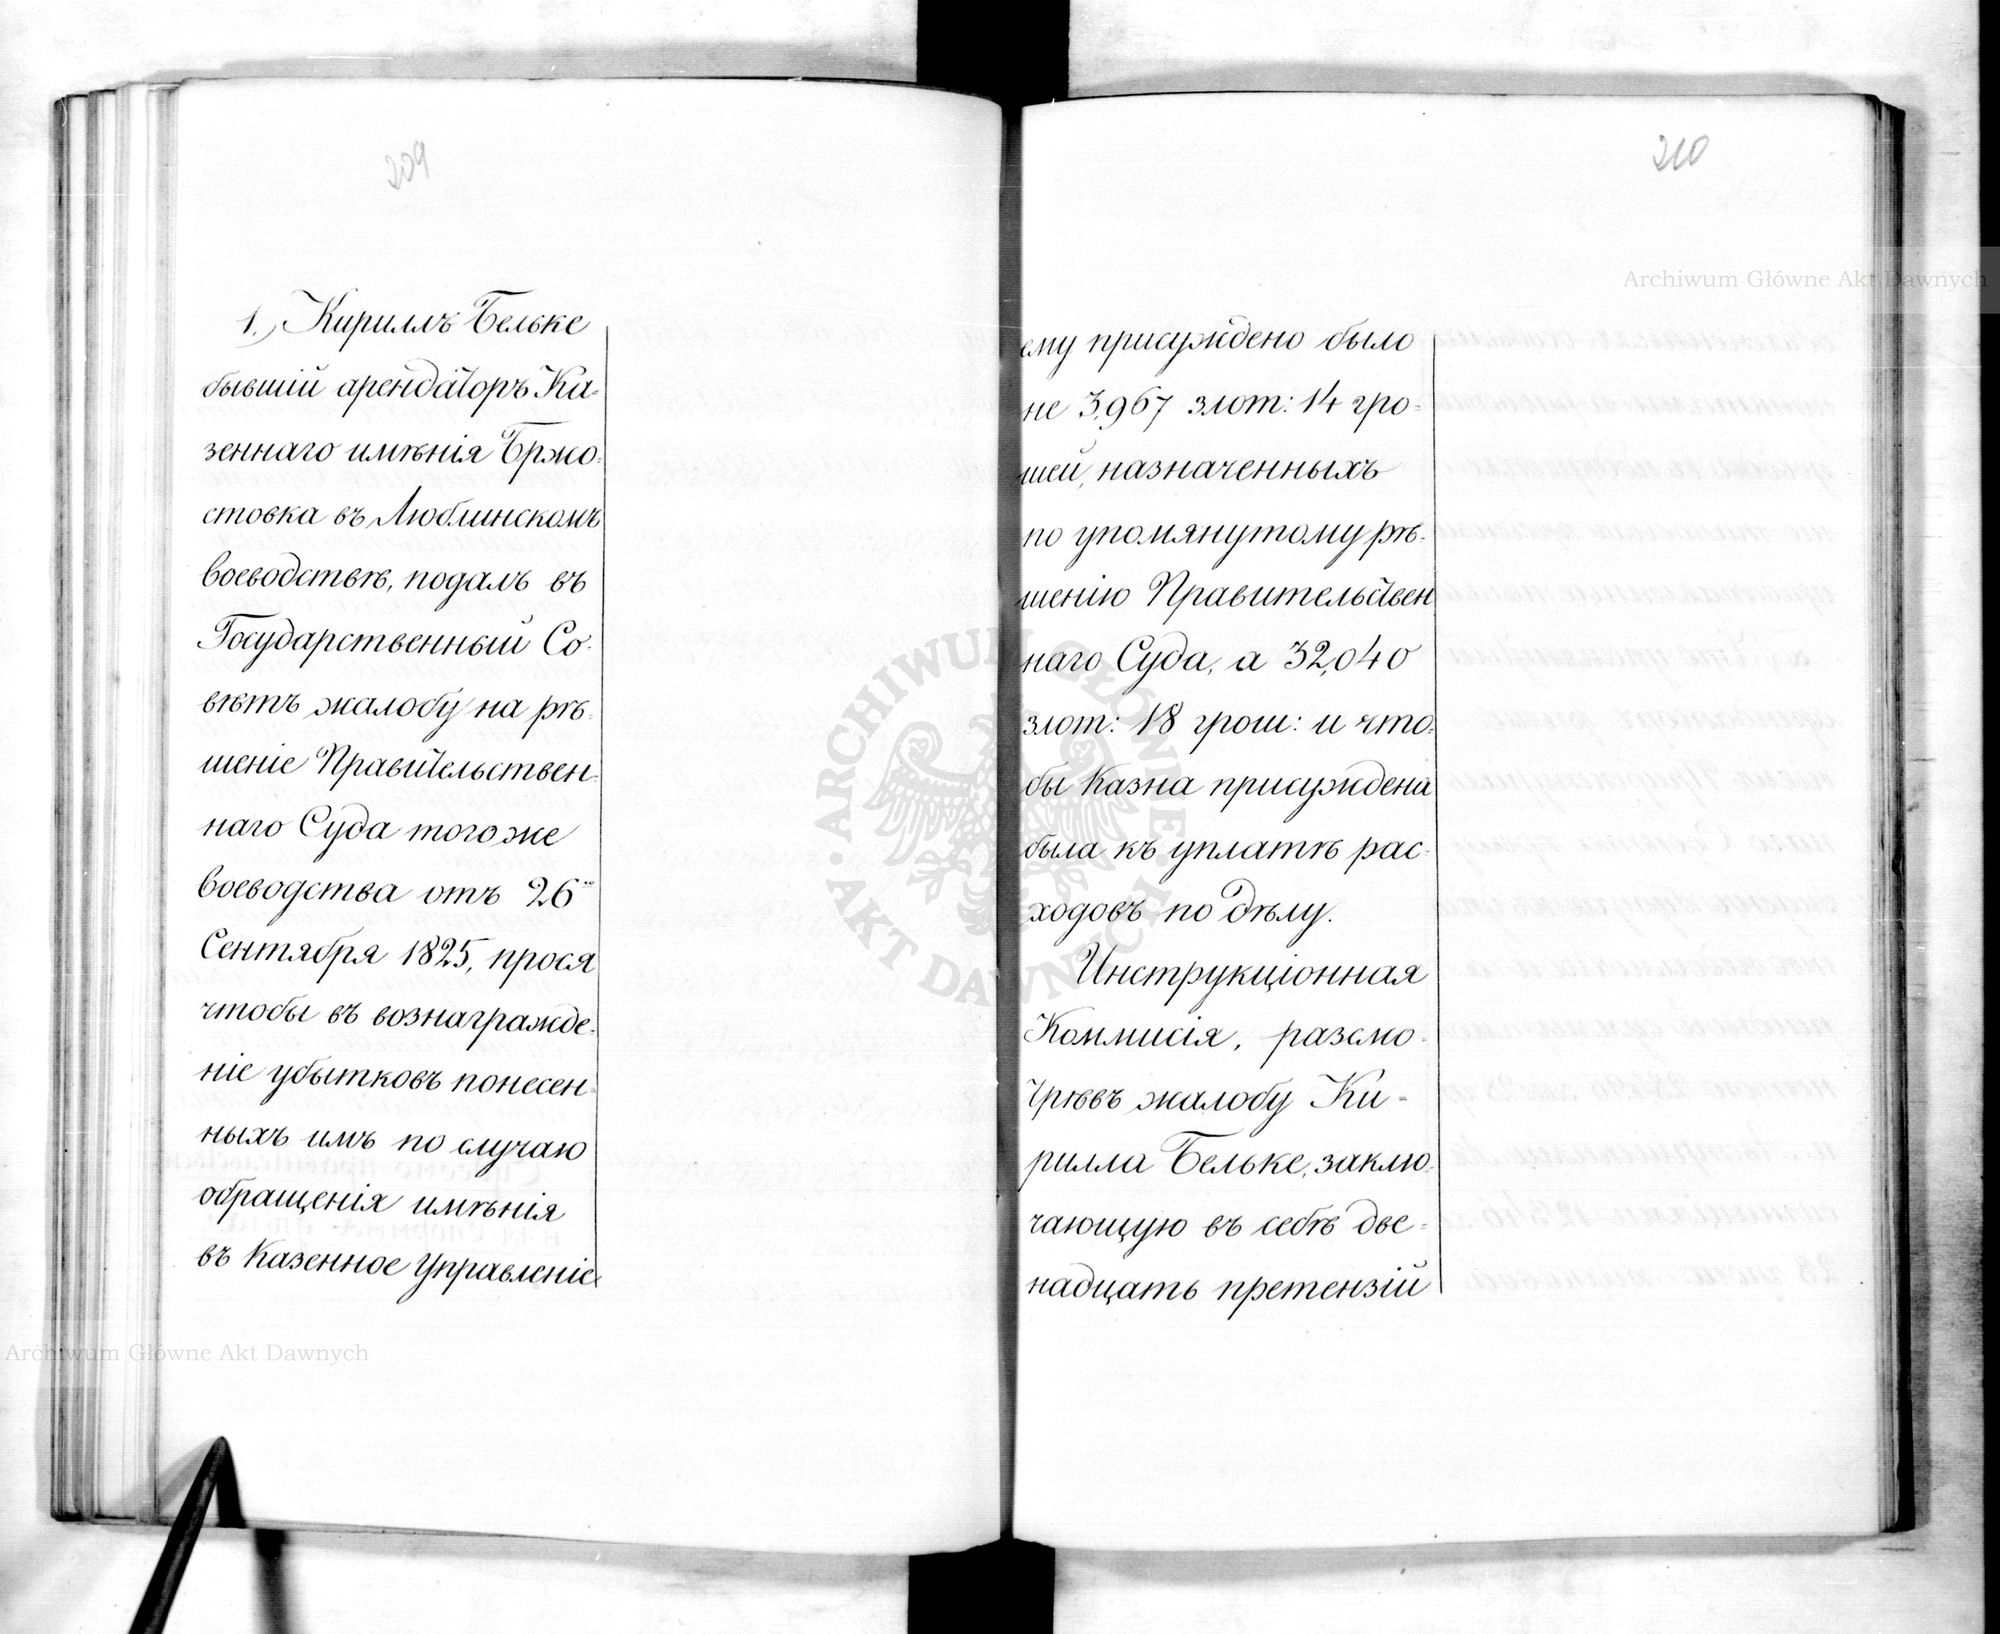 209
1.) Кириллъ Бельке
бывшій арендаторъ Ка-
зеннаго имѣнія Бржо-
стовка въ Люблинскомъ
воеводствѣ, подалъ въ
Государственный Со-
вѣтъ жалобу на рѣ-
шеніе Правительствен-
наго Суда того же
воеводства отъ 26го
Сентября 1825, прося
чтобы въ вознагражде-
ніе убытковъ понесен-
ныхъ имъ по случаю
обращенія имѣнія
въ Казенное Управленіе
210
ему присуждено было
не 3,967 злот: 14 гро-
шей, назначенныхъ
по упомянутому рѣ-
шенію Правительствен
наго Суда, а 32,040
злот: 18 грош: и что-
бы Казна присуждена
была къ уплатѣ рас-
ходовъ по дѣлу.
Инструкціонная
Коммисія, разсмо-
трѣвъ жалобу Ки-
рилла Бельке, заклю-
чающую въ себѣ две-
надцать претензій
Archiwum Główne Akt Dawnych
Archiwum Główne Akt Dawnych
ARCHIWUM GŁÓWNE AKT DAWNYCH